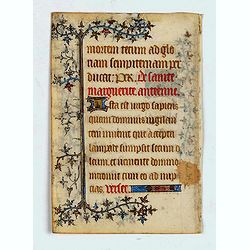 mortem tecum ad glo
riam sempiternam per
ducat. Per. De sainte
marguerite antienne.
Ista est uirgo sapiens
quam dominus uigilan
tem inuenit que acceptis
lampade sumpsit secum o
leum et ueniente domino
introiuit cum eo ad nup
cias. verset